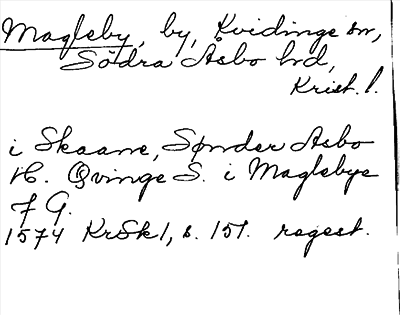 Magleby, by, Kvidinge sn,
Södra Åsbo hd,
Krist. l.
i Skaane, Sønder Asbo
H. Qvinge S. i Maglebye
7 G.
1574 KrSk 1, s. 151. regest.